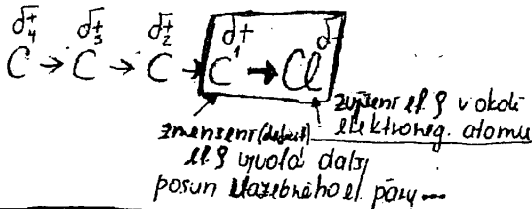 δ+4 δ+3 δ+2 δ+ δ-
C → C → C → C1 → Cl
zvýšení el. ρ v okolí
elektroneg. atomu
zmenšení (deficit)
el. ρ vyvolá další
posun vazebného el. páru...